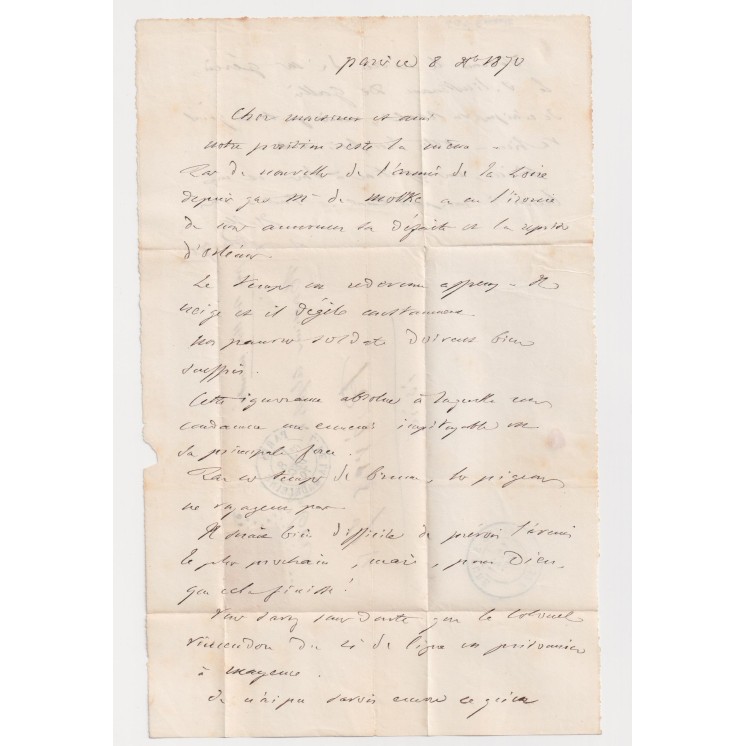 paris ce 8 Xbre 1870
Cher monsieur et ami
notre position reste la même
Pas de nouvelles de l'armée de la Loire
depuis que Mr de Moltke a eu l'ironie
de nous annoncer sa défaite et la reprise
d'Orléans.
Le temps est redevenu affreux - Il
neige et il dégèle constamment.
Nos pauvres soldats doivent bien
souffrir.
Cette ignorance absolue à laquelle nous
condamne un ennemi impitoyable est
sa principale force.
Par ce temps de brume, les pigeons
ne voyagent pas.
Il serait bien difficile de prévoir l'avenir
le plus prochain, mais, pour Dieu,
que cela finisse!
Vous savez sans doute que le Colonel
Vincendon du de ligne est prisonnier
à Mayence.
Je n'ai pu savoir encore ce qu'est